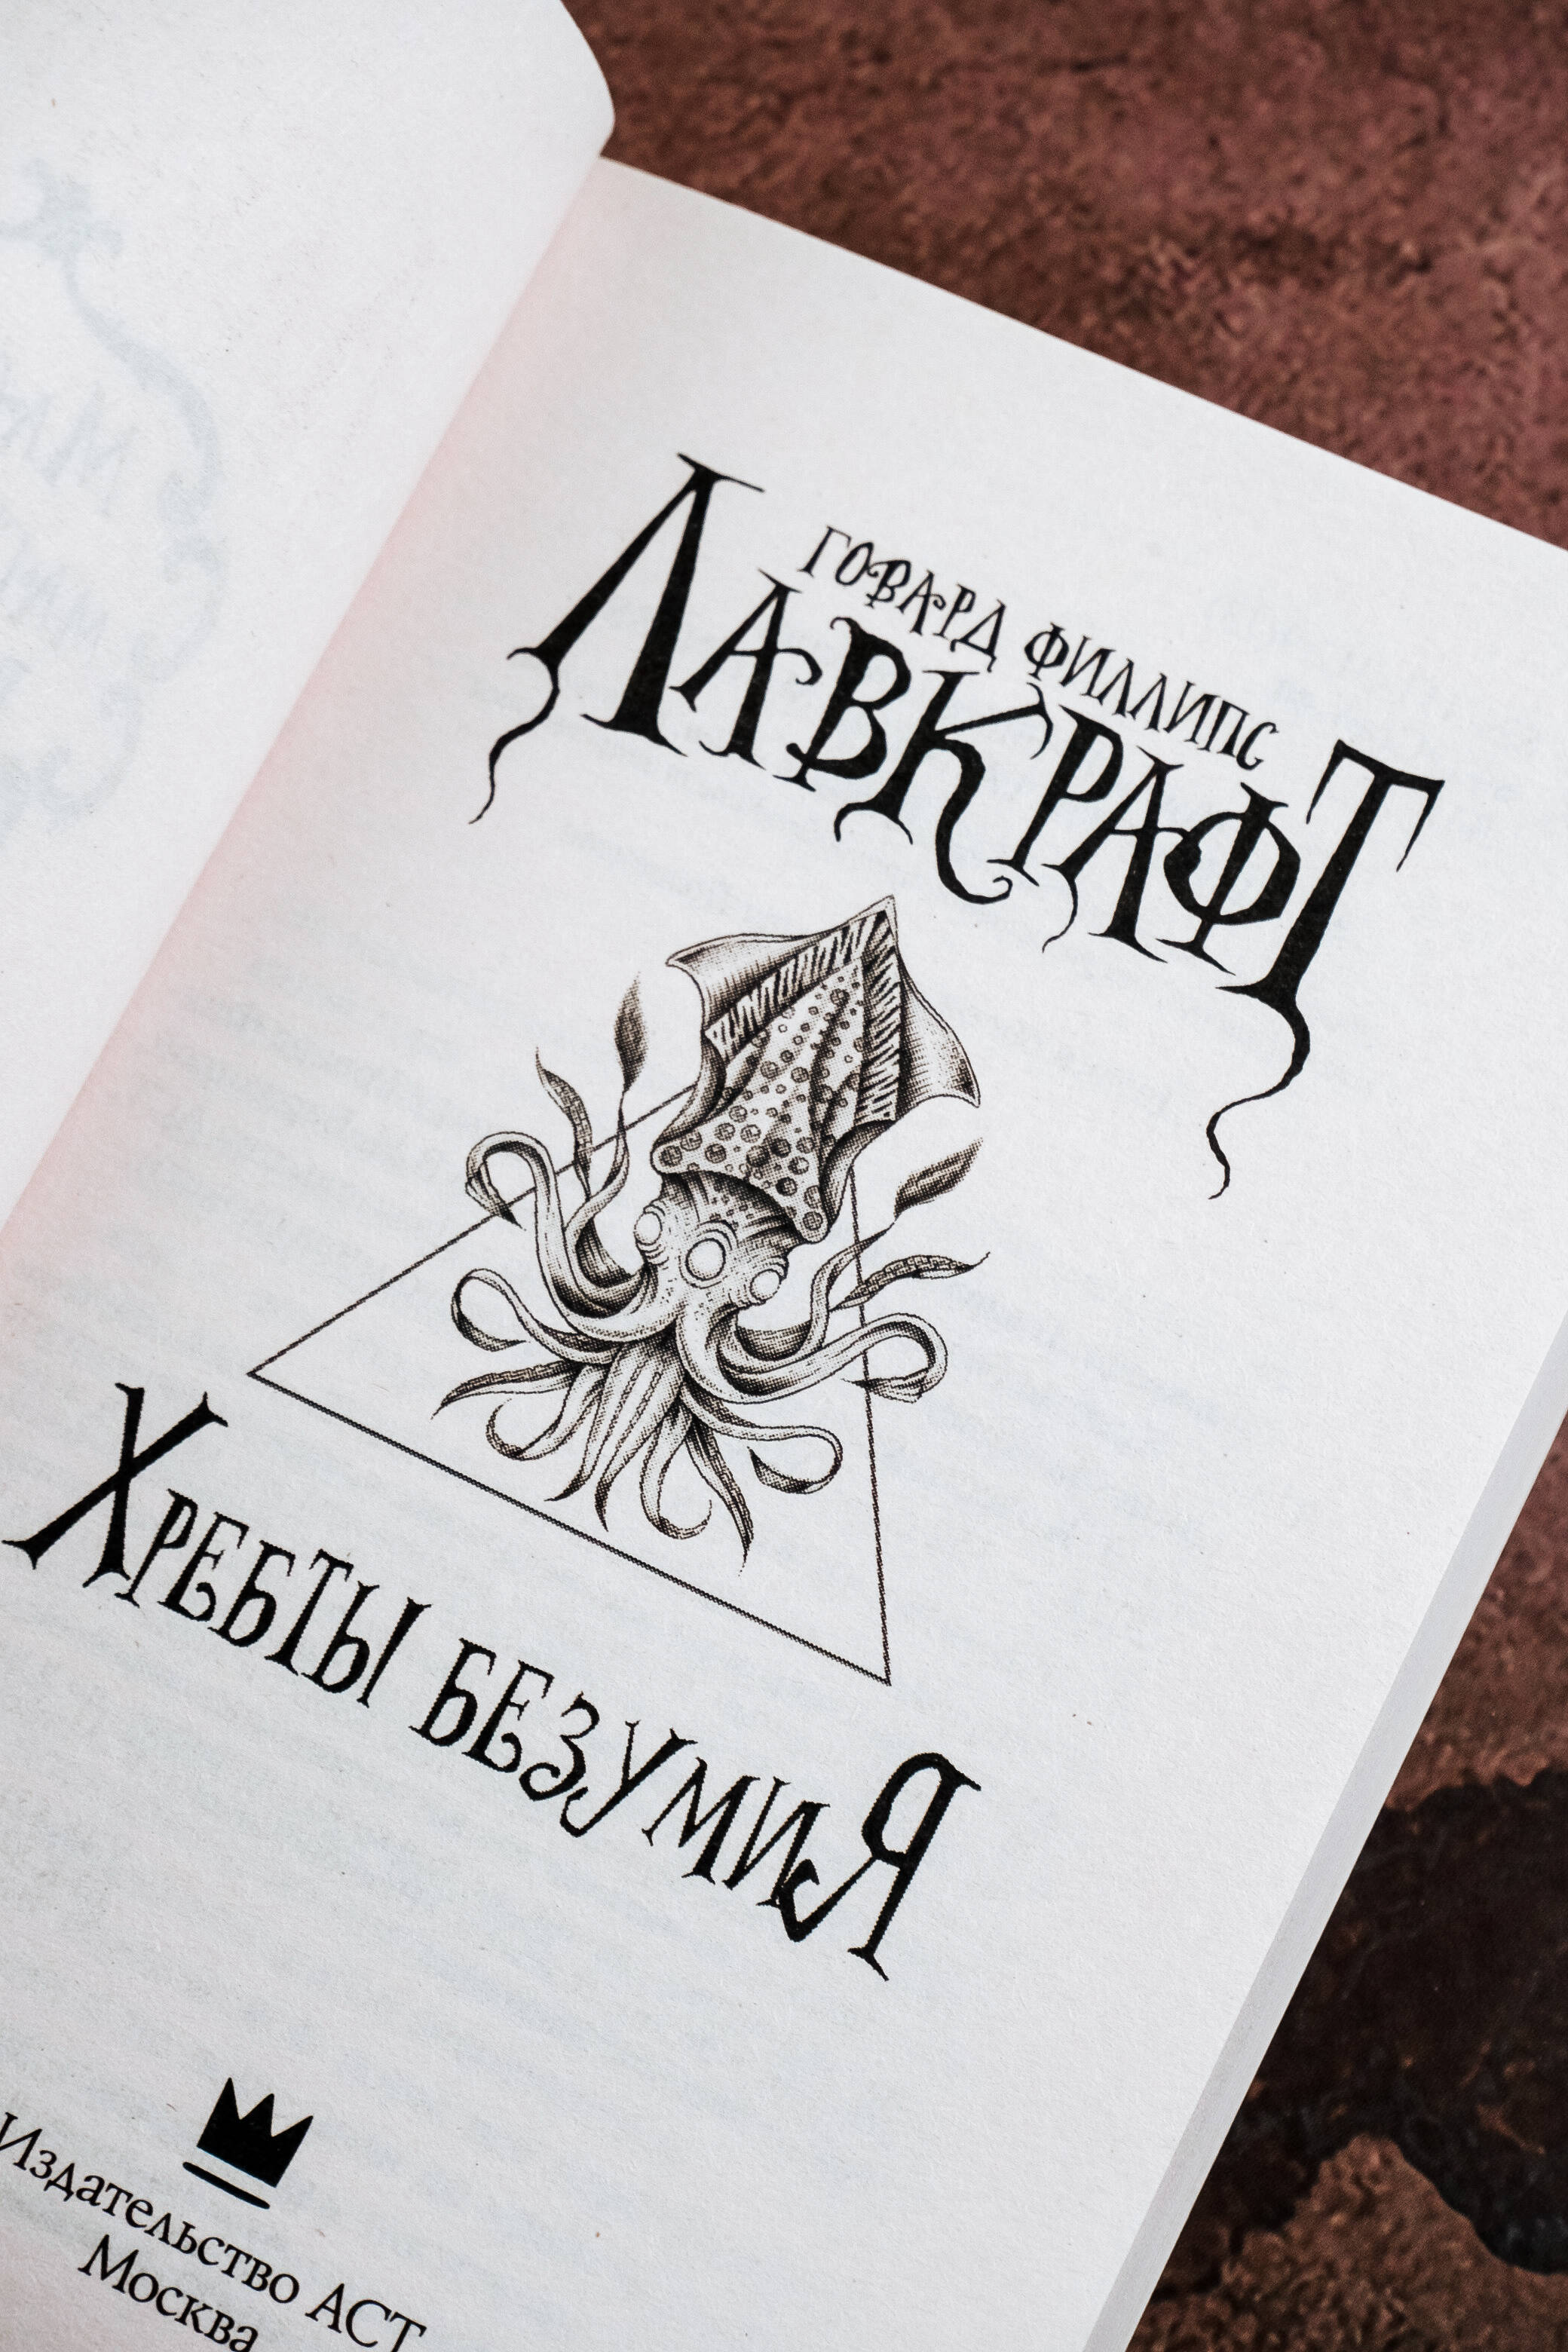 ГОВАРД ФИЛЛИПС
ЛАВКРАФТ
ХРЕБТЫ БЕЗУМИЯ
Издательство АСТ
Москва